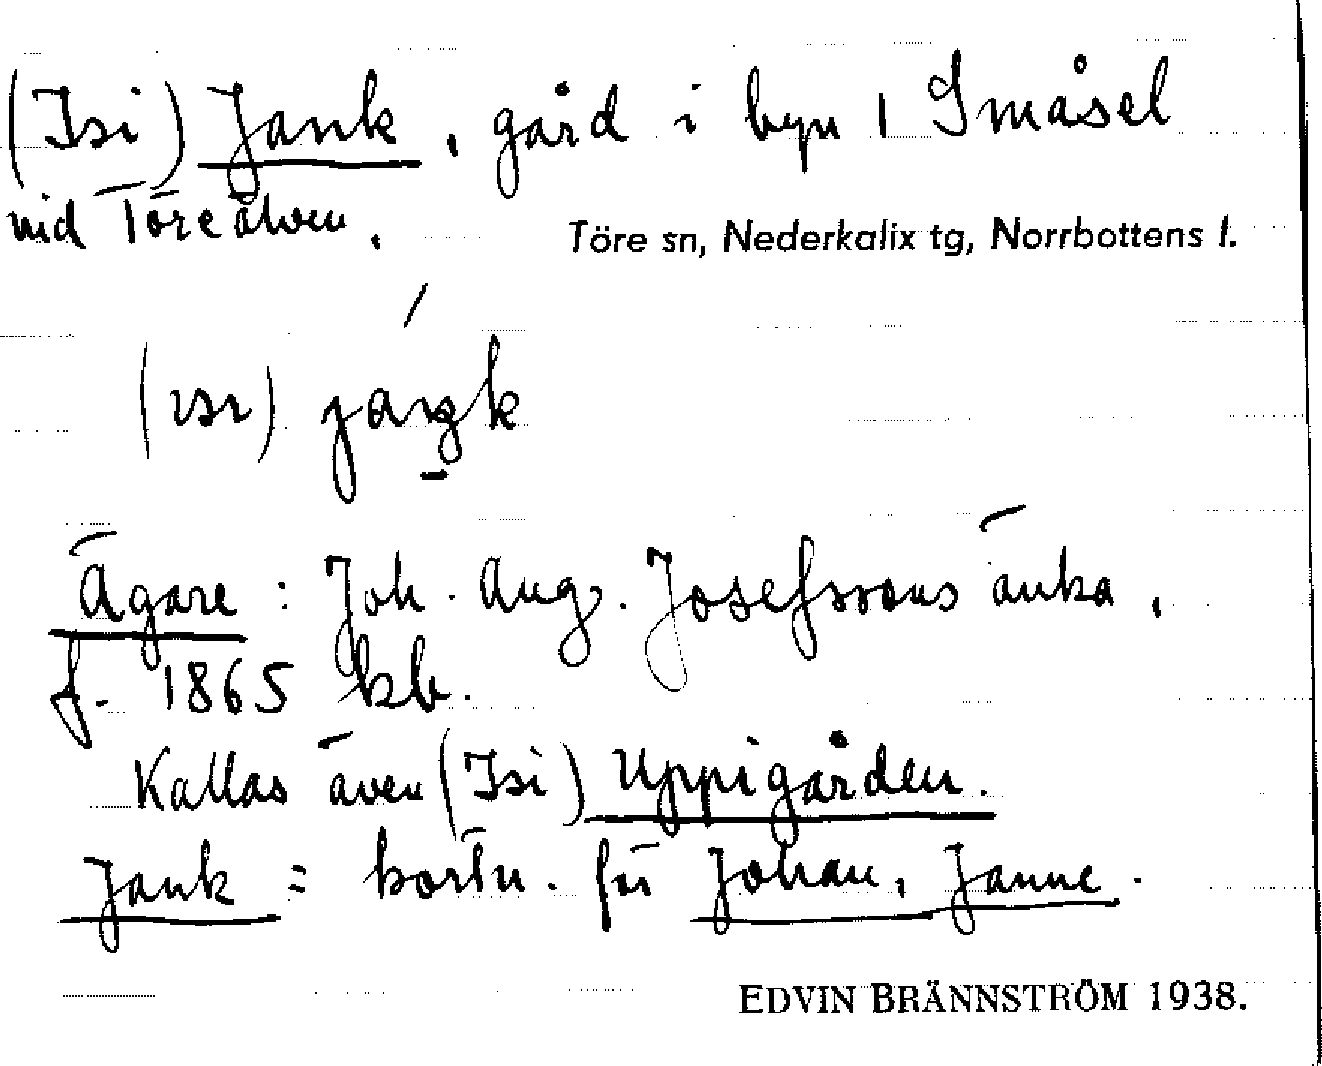 (Isi) Jank, gård i byn 1 Småsel
vid Töreälven.
Töre sn, Nederkalix tg, Norrbottens l.
(ɪsɪ)
Ägare: Joh. Aug. Josefssons änka,
f. 1865 kb.
Kallas även (Isi) Uppigården.
Jank = kortn. för Johan, Janne.
EDVIN BRÄNNSTRÖM 1938.